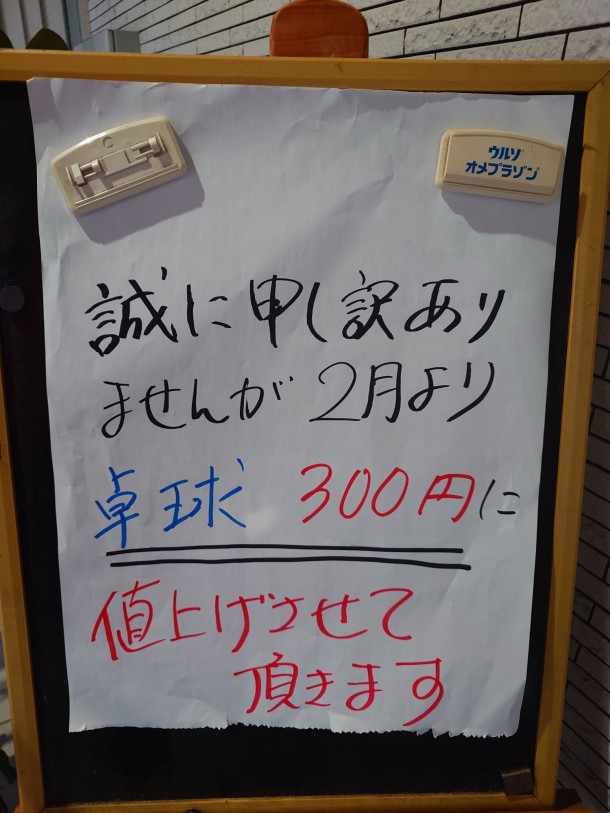 ウルソ
オメプラゾン
誠に申し訳あり
ませんが2月より
卓球 300円に
値上げさせて
頂きます